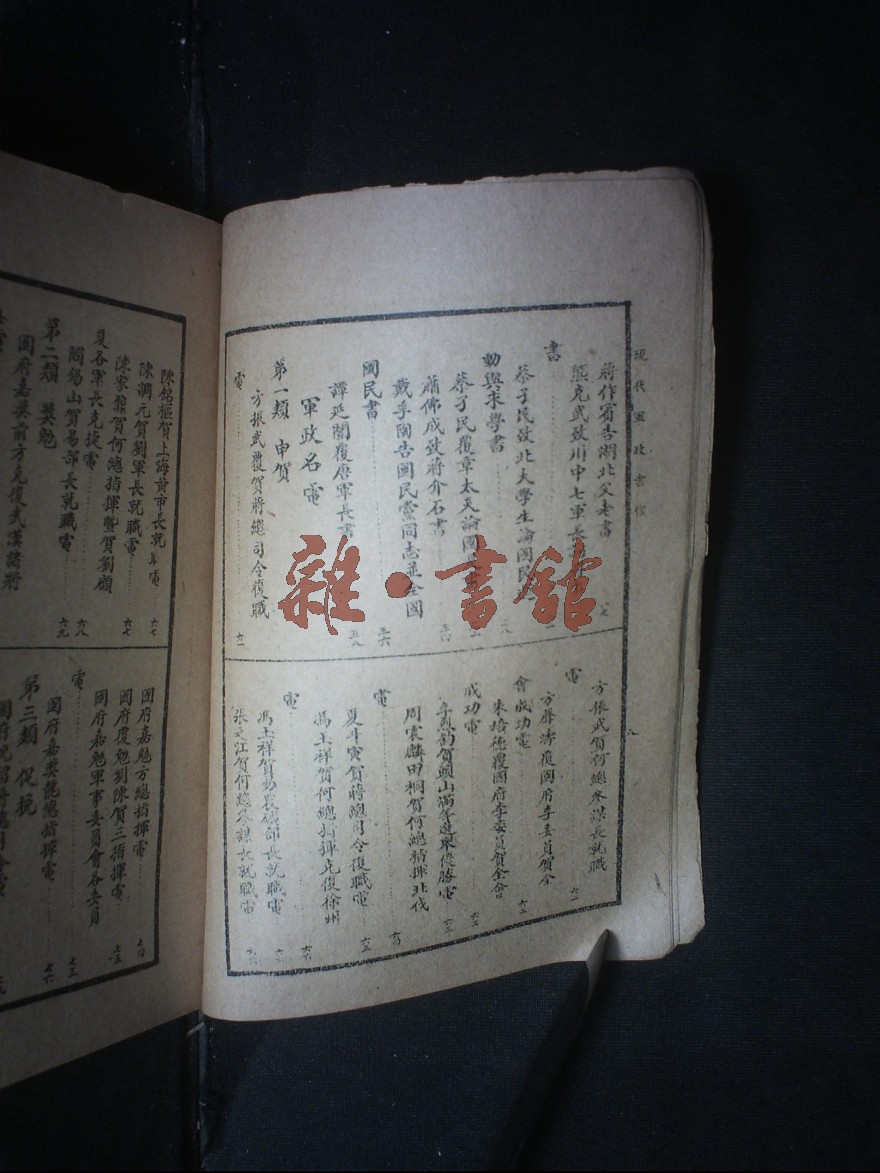 現代軍政書信
八
蔣作賓告湖北父老書
熊克武致川中七軍長
書
蔡孑民致北大學生論國民
動與求學書
蔡孑民覆章太炎論國
蕭佛成致蔣介石書
戴季陶告國民黨同志並全國
國民書
譚延闓覆唐軍長書
軍政名電
第一類 申賀
方振武覆賀蔣總司令復職
電 六一
方振武賀何總參謀長就職
電 六一
方聲濤覆國府李委員賀全
會成功電 六二
朱培德覆國府李委員賀全會
成功電 六二
李烈鈞賀
周震麟田桐賀何總指揮北伐
電
夏斗寅賀蔣總司令復職電
馮玉祥賀何總指揮克復徐州
電
馮玉祥賀易農礦部長就職電
張之江賀何總參謀長就職電
陳銘樞賀上海黃市長就職電 六七
陳調元賀劉軍長就職電
陳家鼐賀何總指揮暨賀劉顧
夏各軍長克捷電 六七
閻錫山賀易部長就職電 六八
第二類 獎勉 六九
國府嘉獎前方克復武漢諸將
國府嘉勉方總指揮電
國府復勉劉陳賀三指揮電
國府嘉勉軍事委員會各委員
電
國府嘉獎 總指揮電 七六
第三類 促挽
雜·書館